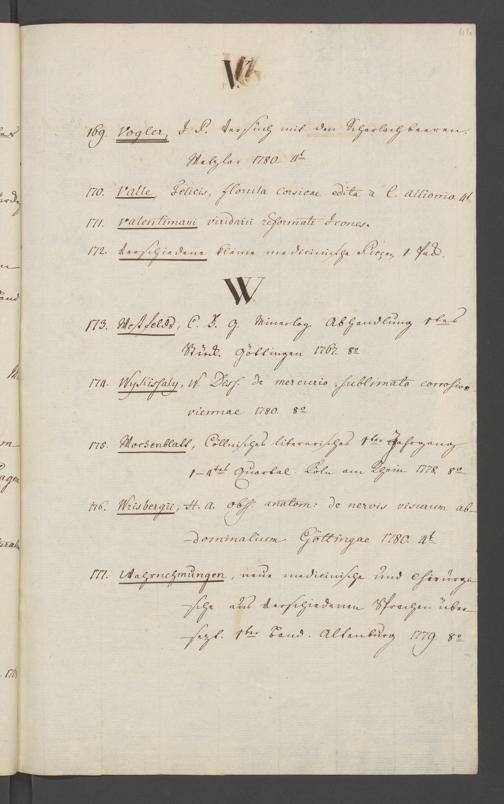 V.
169. Vogler, J. P. Versuch mit den Scharlachbeeren.
Wetzlar 1780. 4t
170. Valle, Felicis, florula corsicae edita a C. Allionio. 4t.
171. Valentiniani viridarii reformati Icones.
172. Verschiedene kleine medicinische Piecen 1. Fas.
W.
173. Westfelds, C. F. G. Mineralog. Abhandlung 1tes
Stück. Göttingen 1767. 8o
174. Wykissaly, W. Diss. de mercurio sublimato corrosivo
viennae 1780. 8o
175. Wochenblatt, Cöllnisches literarisches 1ter Jahrgang
1–4tes Quartal. Köln am Rhein 1778. 8o
176. Wrisbergii, H. A. obs. anatom: de nervis viscerum ab-
-dominalium. Göttingae 1780. 4t
177. Wahrnehmungen, neue medicinische und chirurgi-
-sche aus verschiedenen Sprachen über-
-sezt. 1ter Band. Altenburg 1779. 8o